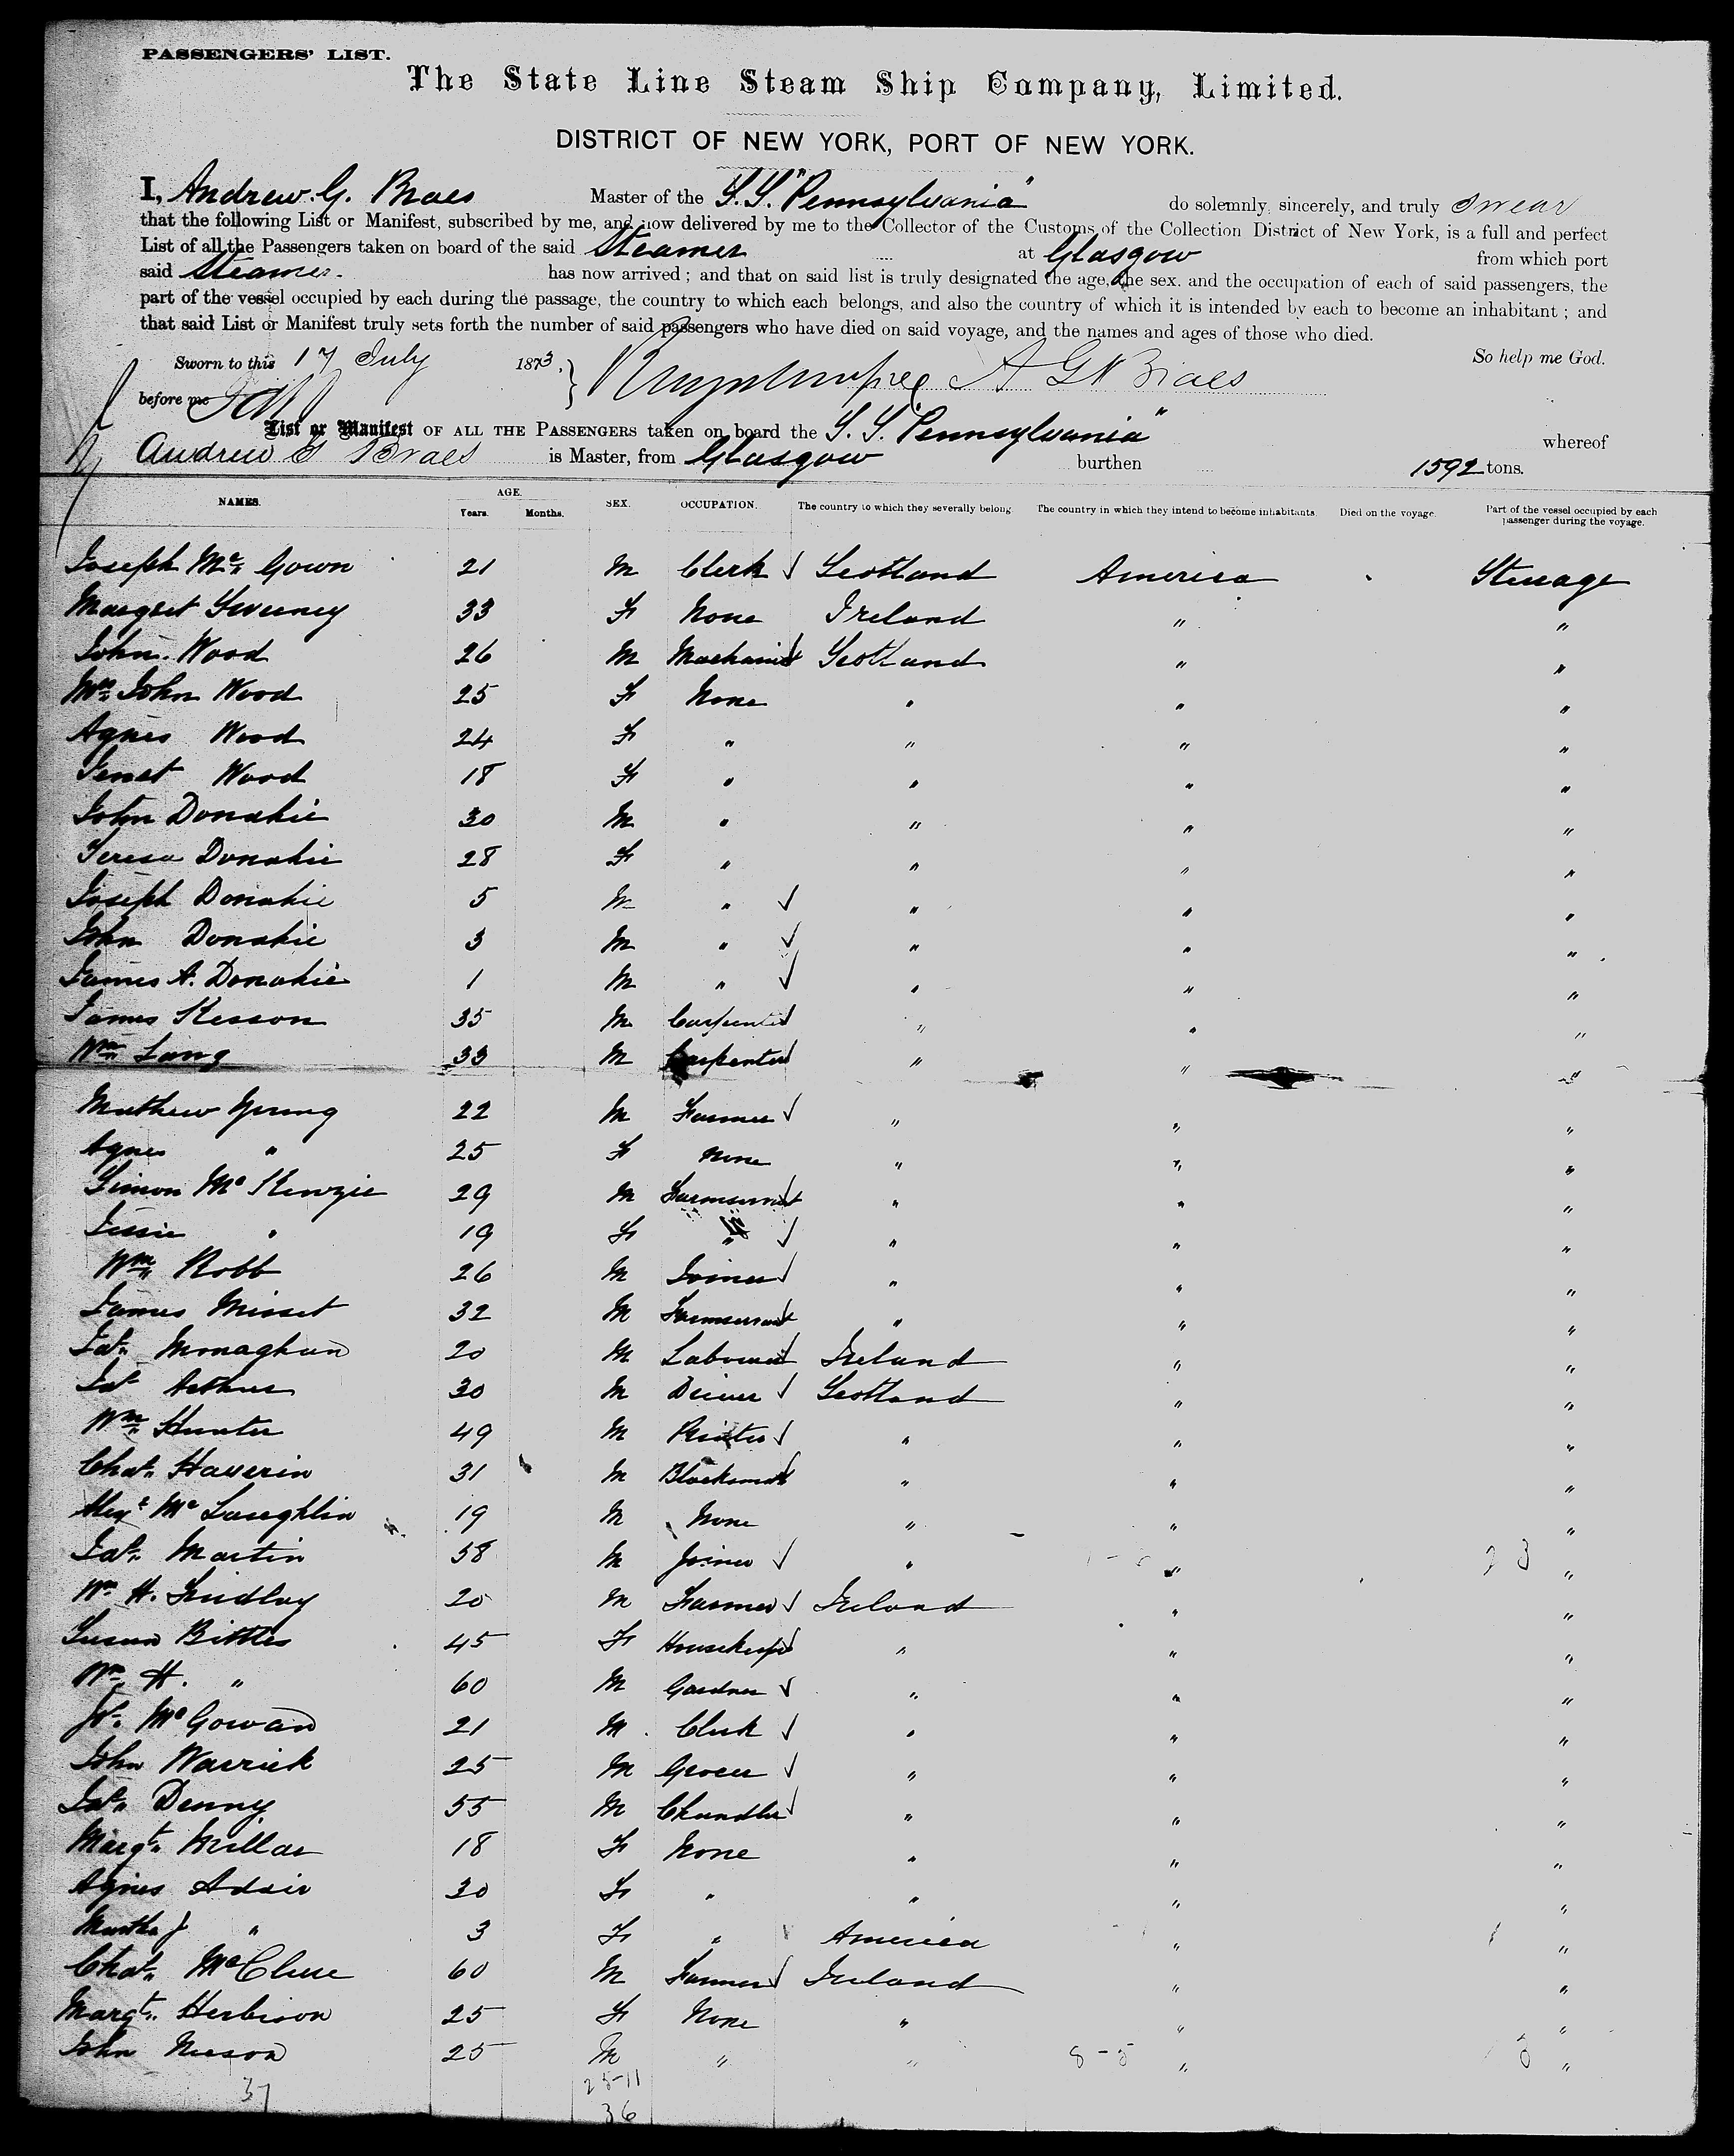 PASSENGERS' LIST.
The State Line Steam Ship Company, Limited.
DISTRICT OF NEW YORK, PORT OF NEW YORK.
I, Andrew. G. Braes Master of the S.S. "Pennsylvania" do solemnly, sincerely, and truly swear
that the following List or Manifest, subscribed by me, and now delivered by me to the Collector of the Customs of the Collection District of New York, is a full and perfect
List of all the Passengers taken on board of the said Steamer at Glasgow from which port
said Steamer. has now arrived; and that on said list is truly designated the age, the sex. and the occupation of each of said passengers, the
part of the vessel occupied by each during the passage, the country to which each belongs, and also the country of which it is intended by each to become an inhabitant; and
that said List or Manifest truly sets forth the number of said passengers who have died on said voyage, and the names and ages of those who died.
So help me God.
Sworn to this 17 July 1873. A G Braes
before me
List or Manifest OF ALL THE PASSENGERS taken on board the S.S. "Pennsylvania" whereof
Andrew G Braes is Master, from Glasgow burthen 1592 tons.
NAMES. AGE. Years. Months. SEX. OCCUPATION. The country to which they severally belong. The country in which they intend to become inhabitants. Died on the voyage. Part of the vessel occupied by each passenger during the voyage.
Joseph Mc Gown 21 M Clerk Scotland America Steerage
Margret Sweeney 33 F None Ireland " "
John. Wood 26 M Machanist Scotland " "
Mrs John Wood 25 F None " " "
Agnes Wood 24 F " " " "
Jenet Wood 18 F " " " "
John Donahie 30 M " " " "
Teresa Donahie 28 F " " " "
Joseph Donahie 5 M " " " "
John Donahie 3 M " " " "
James A. Donahie 1 M " " " "
James Kesson 35 M Carpenter " " "
Wm Lang 33 M Carpenter " " "
Mathew Young 22 M Farmer " " "
Agnes " 25 F None " " "
Simon Mc Kenzie 29 M Farmservant " " "
Jessie " 19 F " " " "
Wm Robb 26 M Joiner " " "
James Misset 32 M Farmservant " " "
Jas Monaghan 20 M Labourer Ireland " "
Jas Arthur 30 M Driver Scotland " "
Wm Hunter 49 M Printer " " "
Chas Haverin 31 M Blacksmith " " "
Alexr Mc Laughlin 19 M None " " "
Jas Martin 58 M Joiner " " "
Wm H. Findlay 20 M Farmer Ireland " "
Susan Bittles 45 F Housekeeper " " "
Wm H. " 60 M Gardner " " "
Jos Mc Gowan 21 M Clerk " " "
John Warrick 25 M Grocer " " "
Jas Denny 55 M Chandler " " "
Margt Millar 18 F None " " "
Agnes Adair 30 F " " " "
Martha J " 3 F " America " "
Chas McClure 60 M Farmer Ireland " "
Margt Herbison 25 F None " " "
John Neeson 25 M " " " "
37 25-11
36